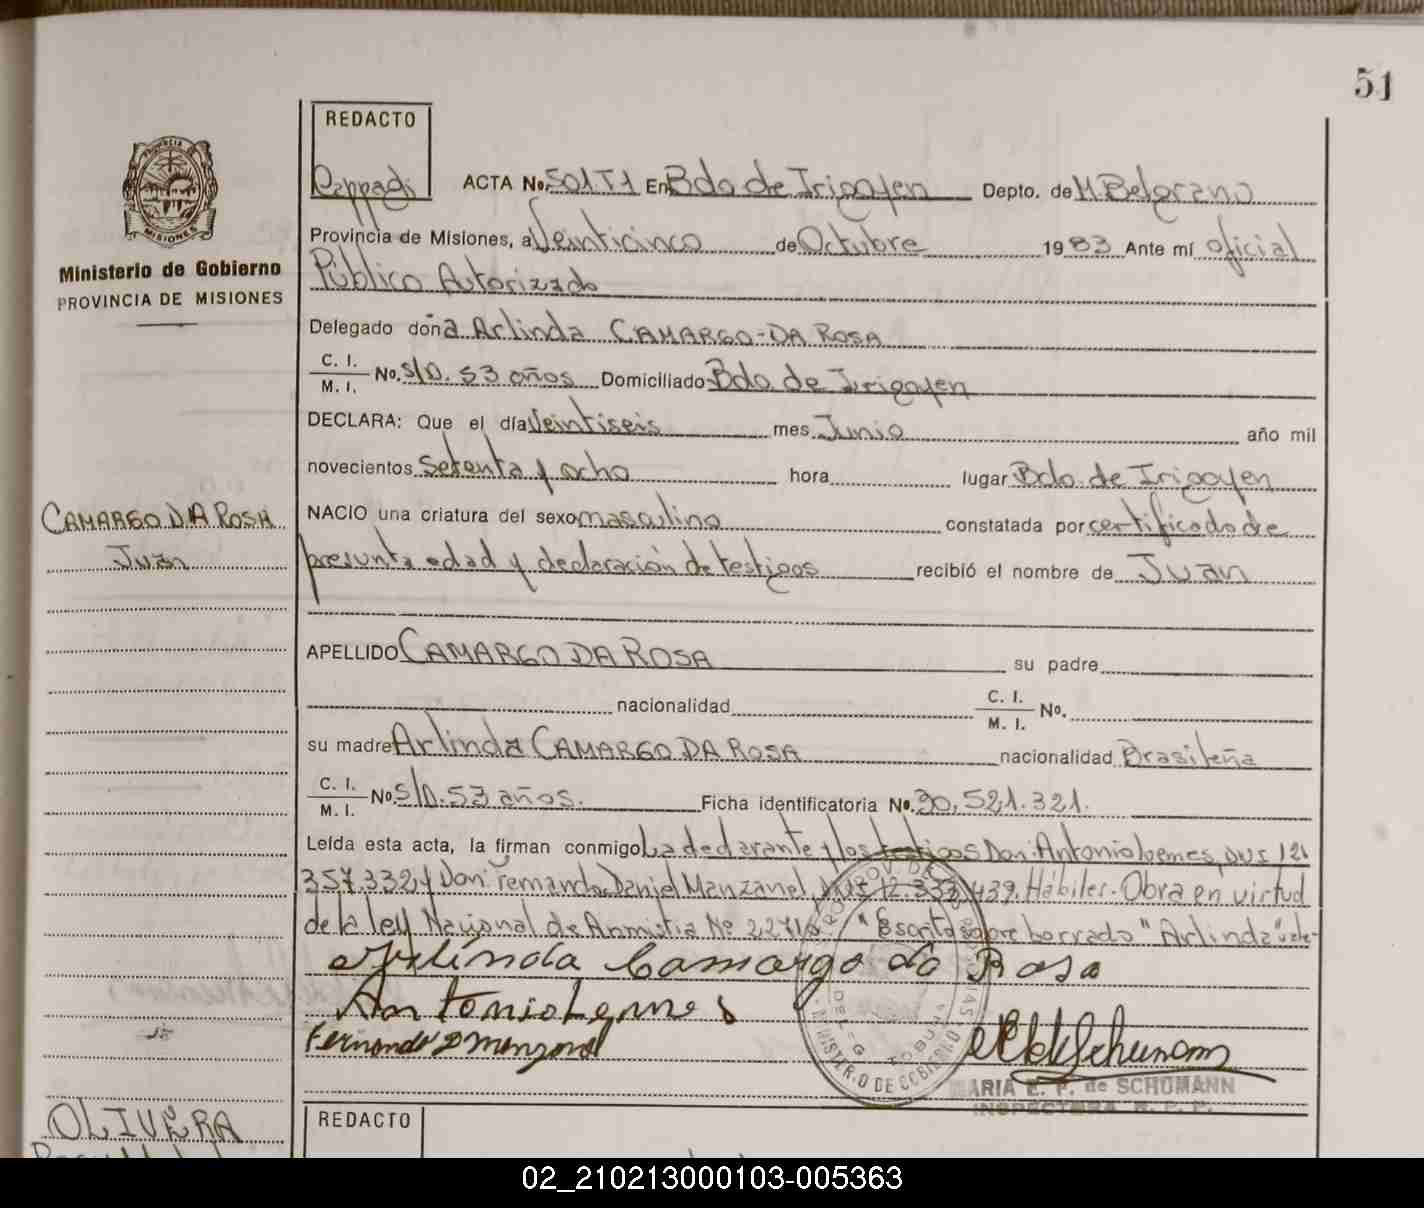 51
REDACTO
PROVINCIA DE
MISIONES
Ministerio de Gobierno
PROVINCIA DE MISIONES
ACTA No. 501T1 En Bdo de Irigoyen Depto. de M. Belgrano
Provincia de Misiones, a Veinticinco de Octubre 1983 Ante mí oficial
Público Autorizado
Delegado doña Arlinda CAMARGO-DA ROSA
C. I.
M. I.
No. S/D. 53 años Domiciliado Bdo. de Irigoyen
DECLARA: Que el día Veintiseis mes Junio año mil
novecientos setenta y ocho hora lugar Bdo. de Irigoyen
CAMARGO DA ROSA
Juan
NACIO una criatura del sexo masculino constatada por certificado de
presunta edad y declaración de testigos recibió el nombre de Juan
APELLIDO CAMARGO DA ROSA su padre
nacionalidad C. I.
M. I. No.
su madre Arlinda CAMARGO DA ROSA nacionalidad Brasileña
C. I.
M. I.
No. S/D. 53 años. Ficha identificatoria No. 30.521.321.
Leída esta acta, la firman conmigo La declarante y los testigos Don: Antonio Lemes, DNI 12.
357.332 y Don: Fernando Daniel Manzanel, 12.333.439. Hábiles. Obra en virtud
de la ley Nacional de Anmistia Nº "Escrito sobre borrado" "Arlinda" vale-
Arlinda Camargo da Rosa
Antonio Lemes
Fernando D Manzanel
MINISTERIO DE GOBIERNO
MARIA E. P. de SCHUMANN
INSPECTORA R. P. P.
OLIVERA
REDACTO
02_210213000103-005363